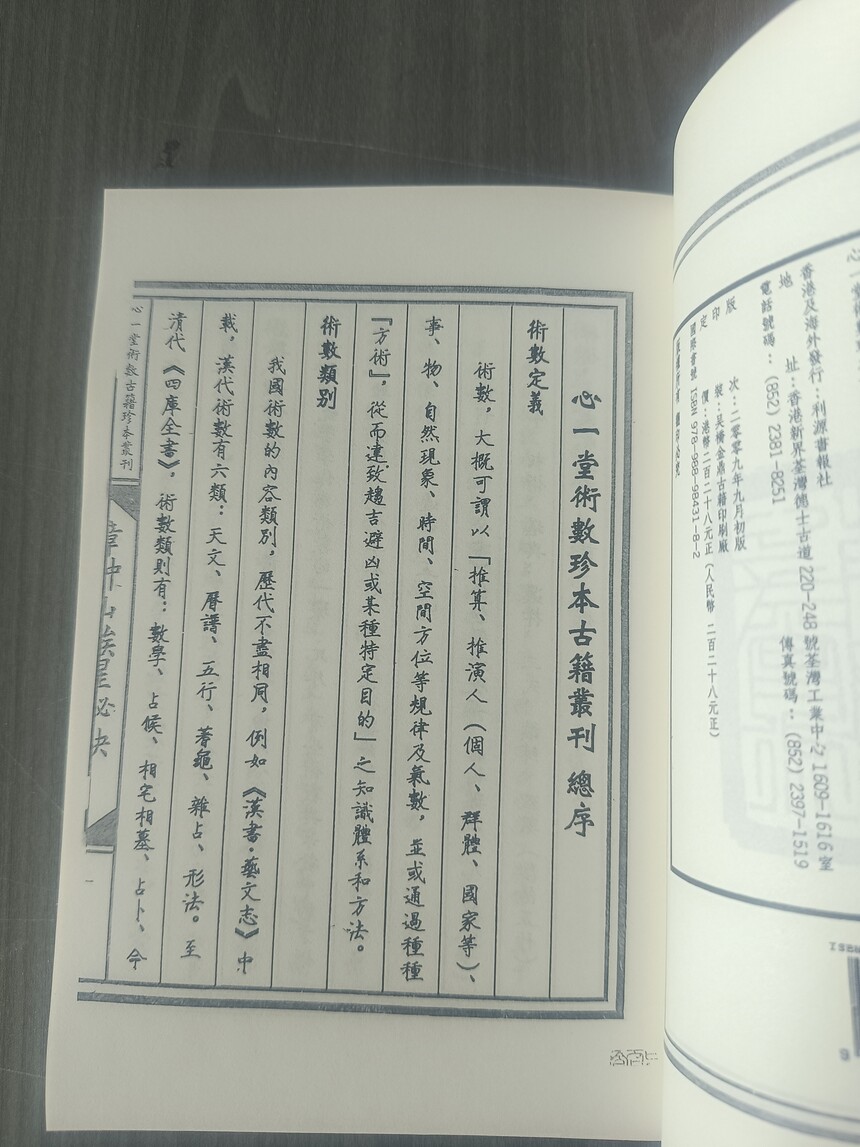 心一堂術數
香港及海外發行：利源書報社
地　址：香港新界荃灣德士古道 220-248 號荃灣工業中心 1609-1616 室
電話號碼：(852) 2381-8251　傳真號碼：(852) 2397-1519
版　次：二零零九年九月初版
印　裝：吴橋金鼎古籍印刷廠
定　價：港幣二百二十八元正（人民幣 二百二十八元正）
國際書號 ISBN 978-988-98431-8-2
版權所有 翻印必究
心一堂術數珍本古籍叢刊 總序
術數定義
術數，大概可謂以「推算、推演人（個人、群體、國家等）、
事、物、自然現象、時間、空間方位等規律及氣數，並或通過種種
『方術』，從而達致趨吉避凶或某種特定目的」之知識體系和方法。
術數類別
我國術數的內容類別，歷代不盡相同，例如《漢書·藝文志》中
載，漢代術數有六類：天文、曆譜、五行、蓍龜、雜占、形法。至
清代《四庫全書》，術數類則有：數學、占候、相宅相墓、占卜、命
心一堂術數古籍珍本叢刊
一